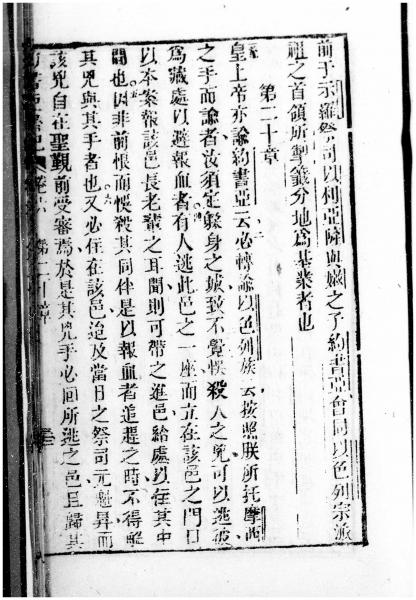 前于示羅祭司以利亞撒與嫩之子約書亞會同以色列宗派
祖之首領所掣籤分地為基業者也
第二十章
皇上帝亦諭約書亞云必轉諭以色列族云按照朕所托摩西
之手而諭者汝須定躲身之城致不覺悞殺人之兇可以逃彼
為藏處以避報血者有人逃此邑之一座而立在該邑之門口
以本案報該邑長老輩之耳聞則可帶之進邑給處以在其中
間也因非前恨而悞殺其同伴是以報血者追趕之時不得解
其兇與其手者也又必住在該邑迨及當日之祭司元魁昇而
該兇自在聖覲前受審焉於是其兇手必囘所逃之邑且歸其
卷六 第二十章